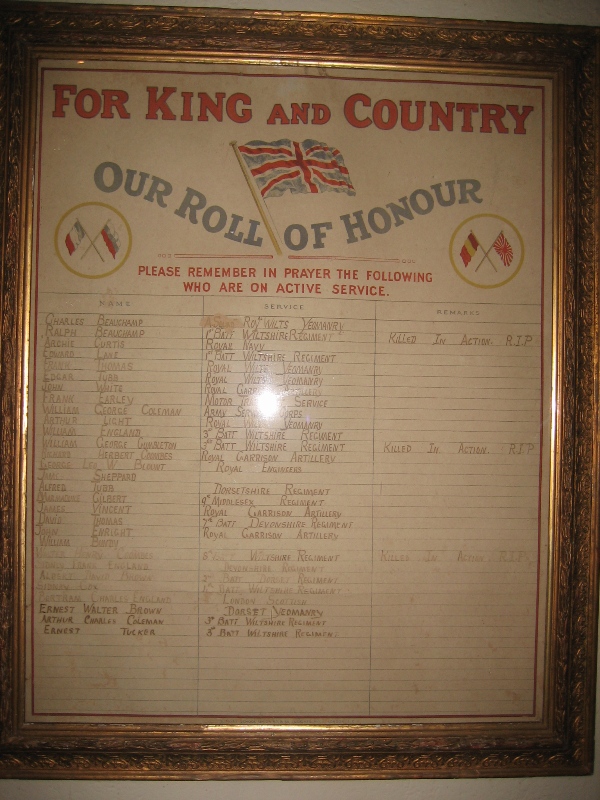 FOR KING AND COUNTRY
OUR ROLL OF HONOUR
PLEASE REMEMBER IN PRAYER THE FOLLOWING
WHO ARE ON ACTIVE SERVICE.
NAME SERVICE REMARKS
CHARLES BEAUCHAMP ROYL WILTS YEOMANRY
RALPH BEAUCHAMP 1st BATT WILTSHIRE REGIMENT KILLED IN ACTION. R.I.P.
ARCHIE CURTIS ROYAL NAVY
EDWARD LANE 1st BATT WILTSHIRE REGIMENT
FRANK THOMAS ROYAL WILTS YEOMANRY
EDGAR JUBB ROYAL YEOMANRY
JOHN WHITE ROYAL ARTILLERY
FRANK EARLEY MOTOR SERVICE
WILLIAM GEORGE COLEMAN ARMY CORPS
ARTHUR LIGHT ROYAL YEOMANRY
WILLIAM ENGLAND 3rd BATT WILTSHIRE REGIMENT
WILLIAM GEORGE BATT WILTSHIRE REGIMENT KILLED IN ACTION. R.I.P.
HERBERT COOMBES ROYAL GARRISON ARTILLERY
GEORGE LEO W. BLOUNT ROYAL ENGINEERS
SHEPPARD
ALFRED JUBB DORSETSHIRE REGIMENT
GILBERT 9th MIDDLESEX REGIMENT
JAMES VINCENT ROYAL GARRISON ARTILLERY
DAVID THOMAS 7th BATT DEVONSHIRE REGIMENT
JOHN ENRIGHT ROYAL GARRISON ARTILLERY
WILLIAM BUNDY
WILTSHIRE REGIMENT KILLED IN ACTION R.I.P.
ENGLAND DEVONSHIRE REGIMENT
ALBERT DAVID BROWN BATT DORSET REGIMENT
COX BATT WILTSHIRE REGIMENT
BERTRAM CHARLES ENGLAND LONDON SCOTTISH
ERNEST WALTER BROWN DORSET YEOMANRY
ARTHUR CHARLES COLEMAN 3rd BATT WILTSHIRE REGIMENT
ERNEST TUCKER 8th BATT WILTSHIRE REGIMENT